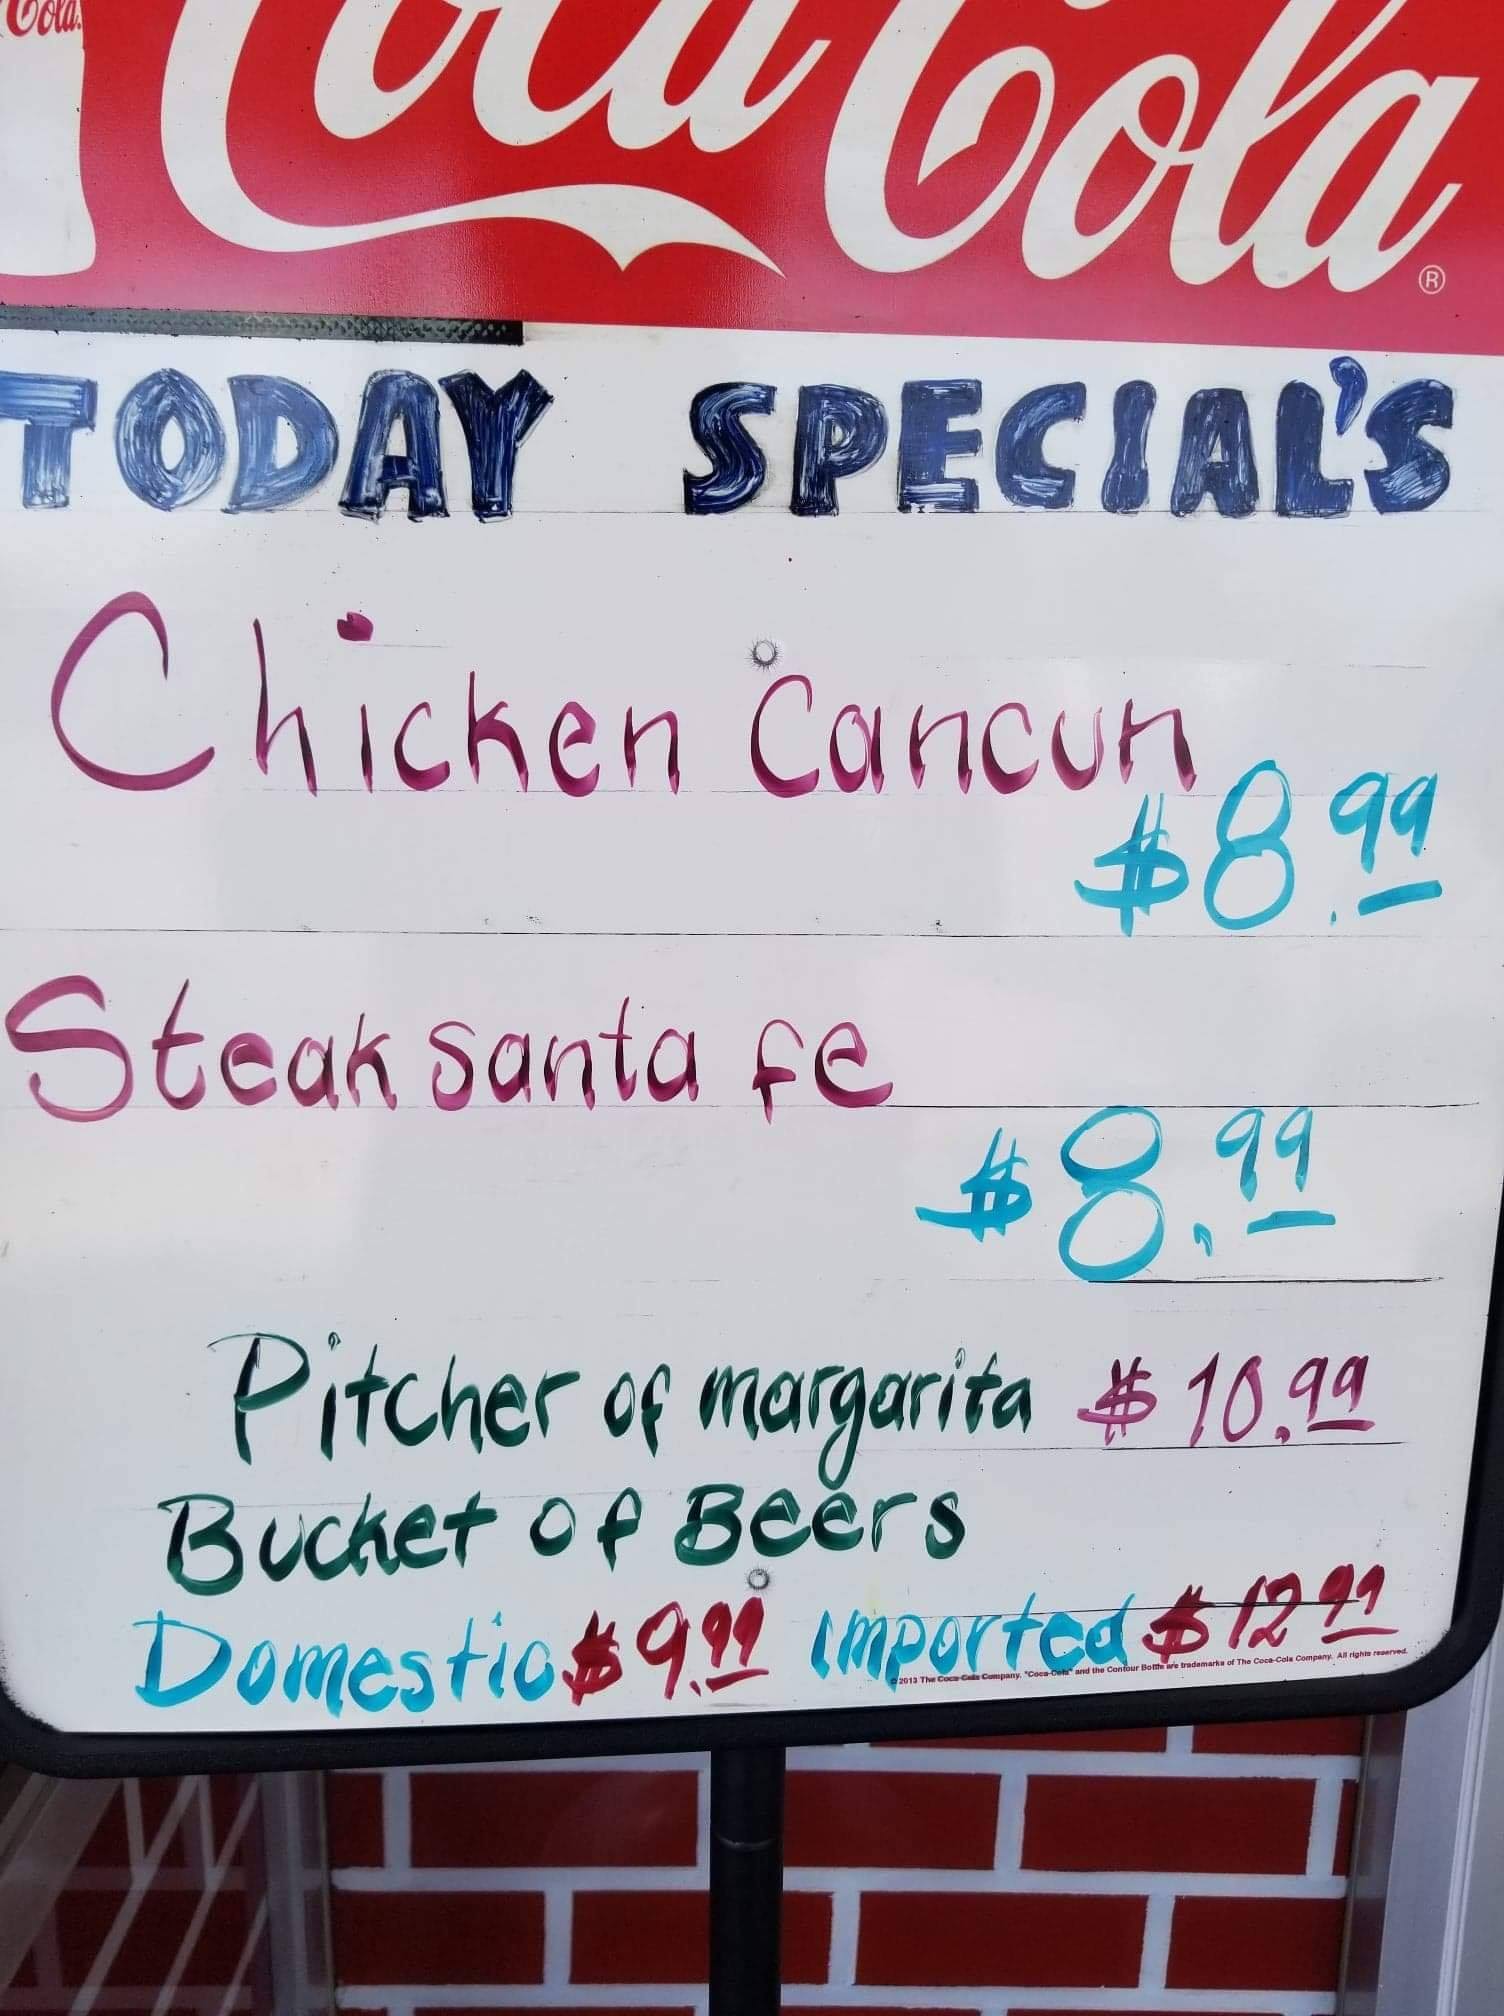 Cola.
Coca-Cola®
TODAY SPECIAL'S
Chicken Cancun
$8.99
Steak santa fe
$8.99
Pitcher of margarita $10.99
Bucket of Beers
Domestic $9.99 Imported $12 99
© 2013 The Coca-Cola Company. "Coca-Cola" and the Contour Bottle are trademarks of The Coca-Cola Company. All rights reserved.